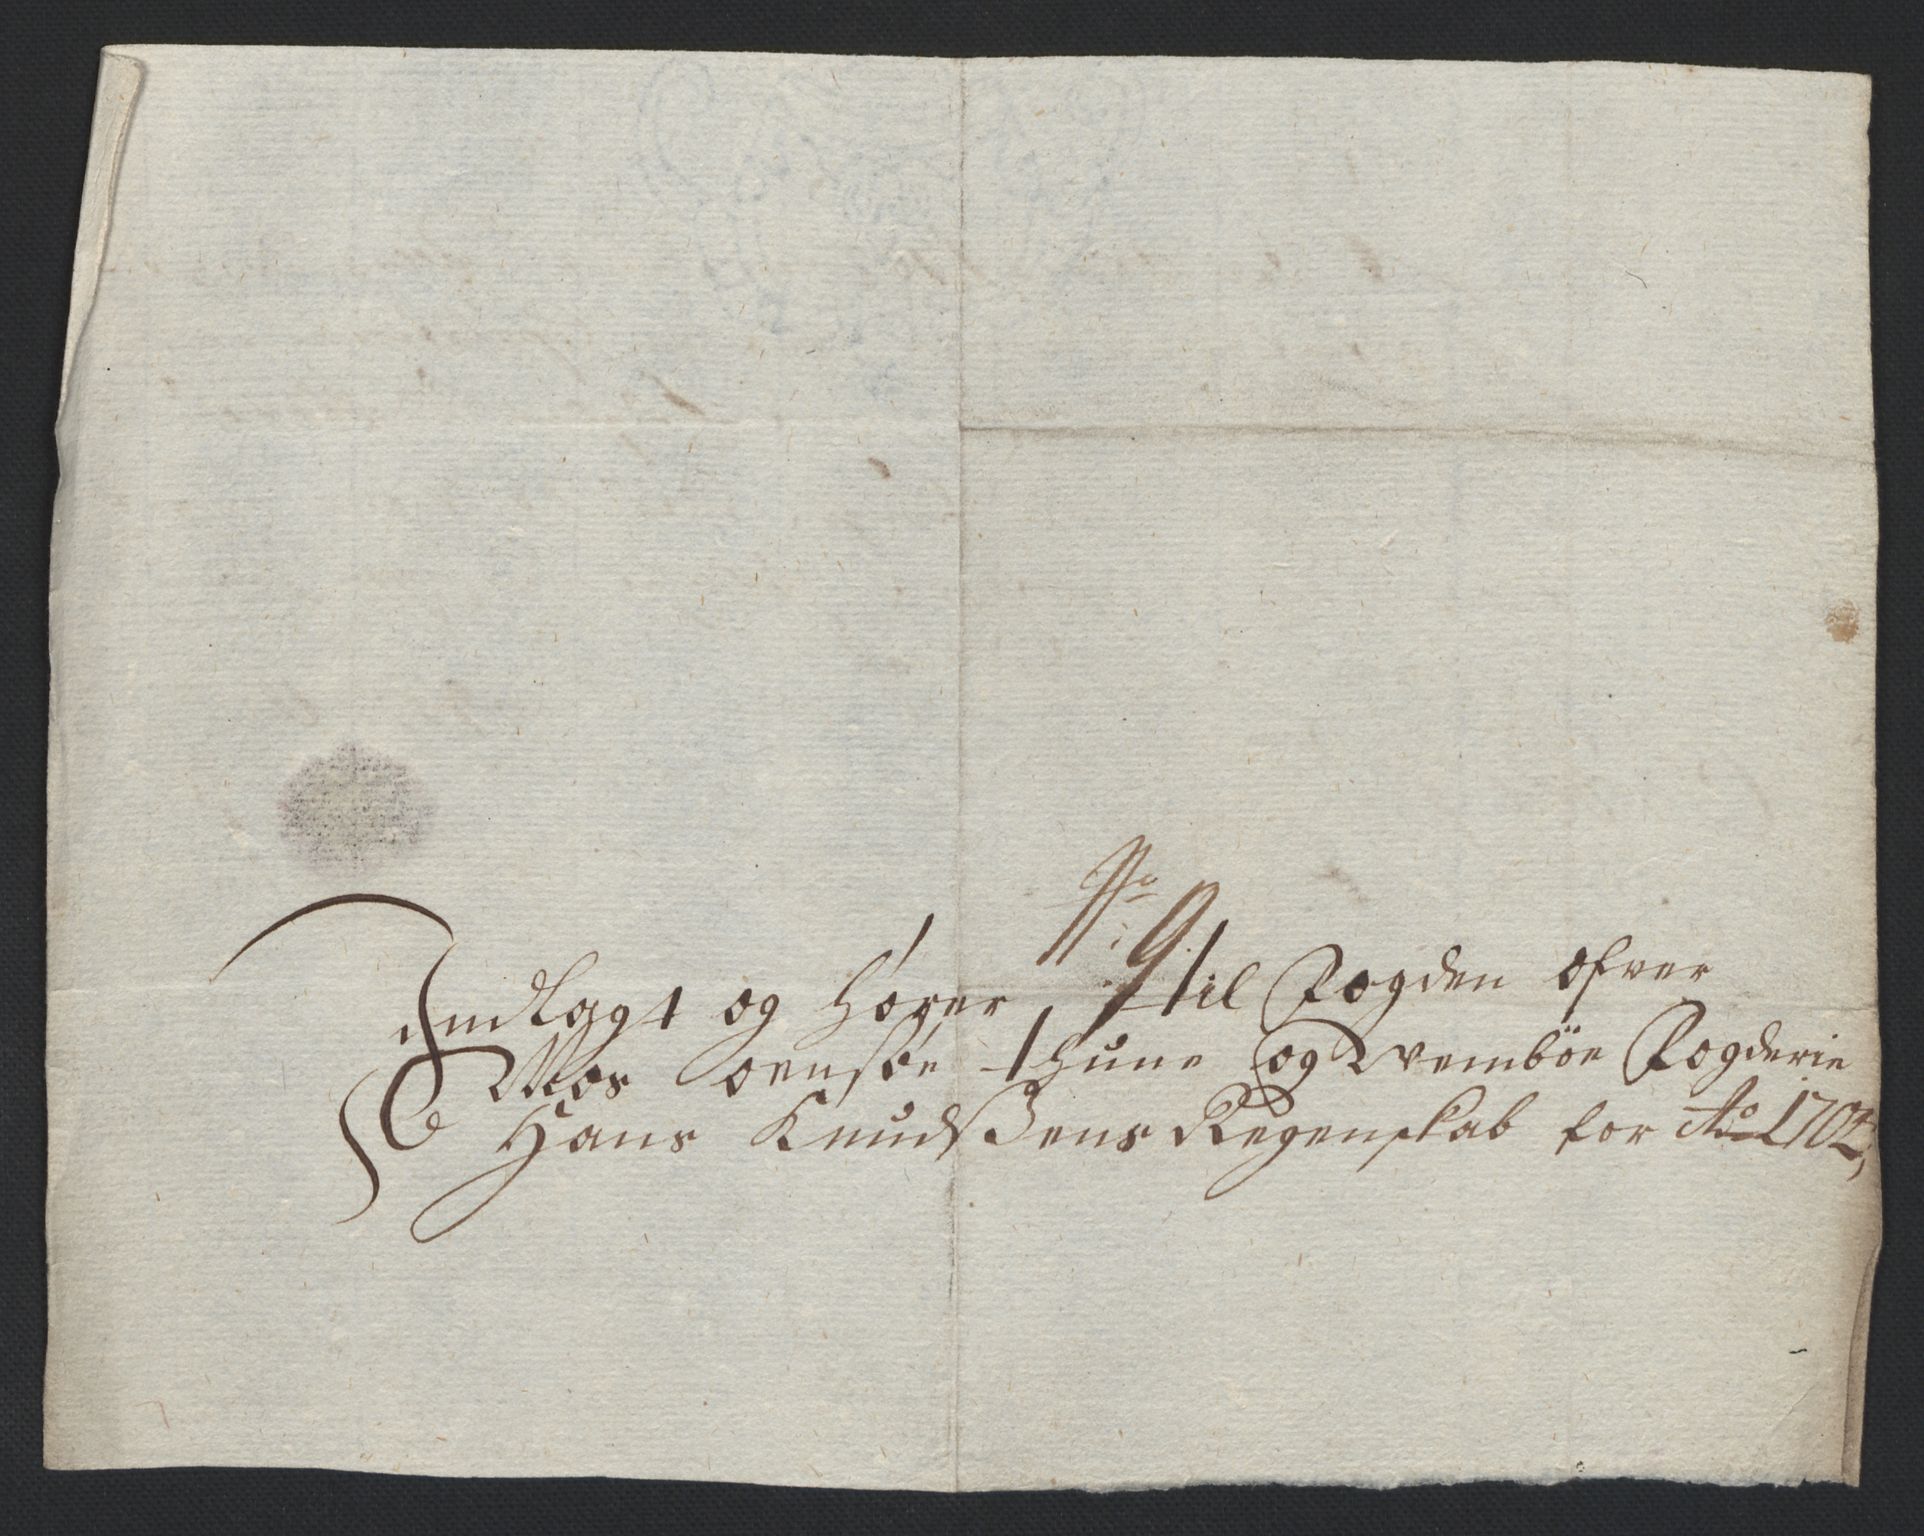 No: 9
Indlagt og hører til Fogden ofver
Mos Oensøe thune og Vembøe Fogderie
Hans Knudsens Regenskab for Ao 1704,